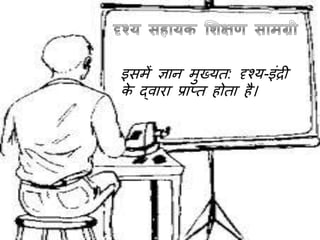 दृश्य सहायक शिक्षण सामग्री
इसमें ज्ञान मुख्यत: दृश्य-इंद्री
के द्वारा प्राप्त होता है।